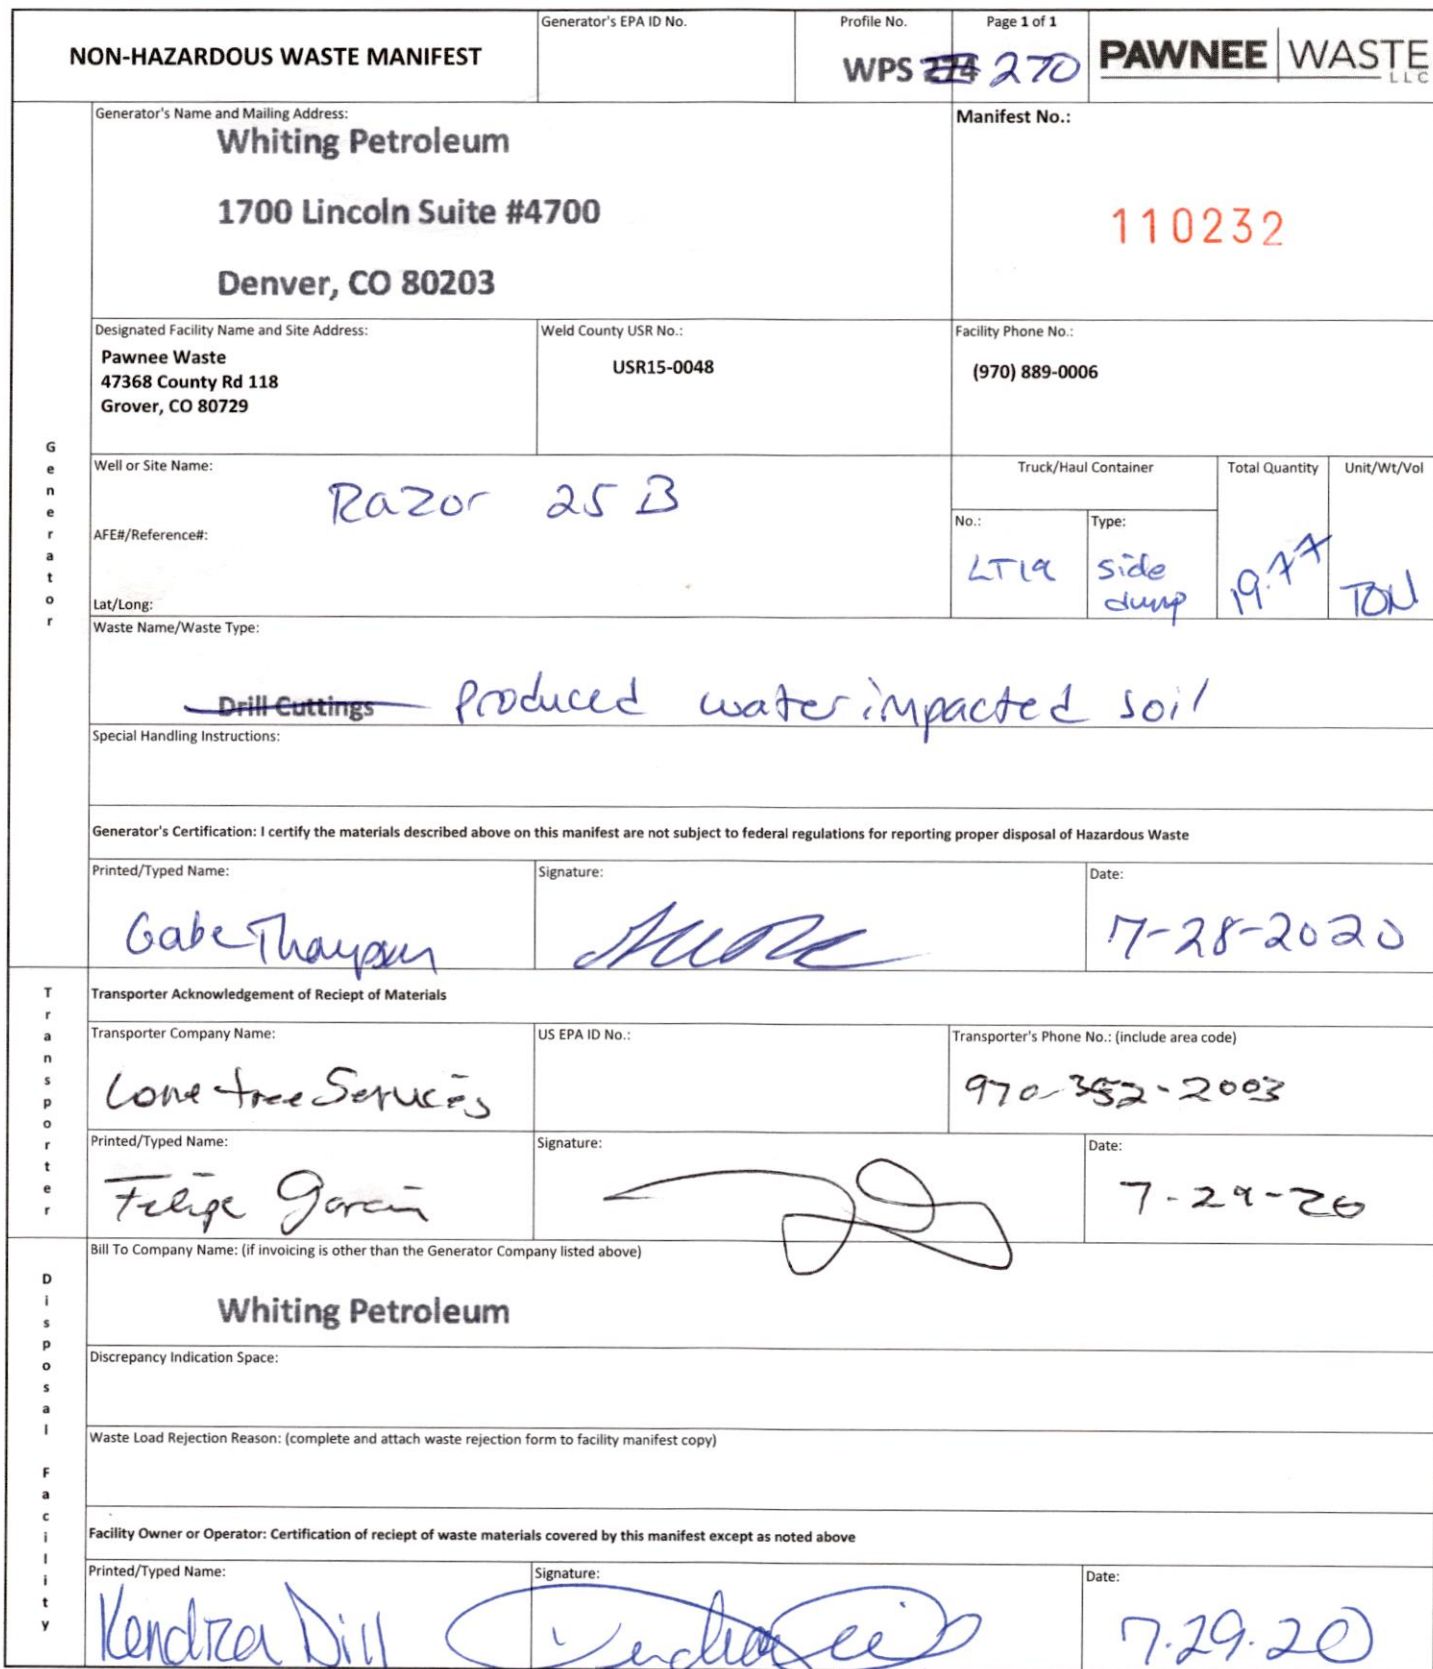 NON-HAZARDOUS WASTE MANIFEST
Generator's EPA ID No.
Profile No.
WPS 274 270
Page 1 of 1
PAWNEE WASTE
LLC
Generator
Generator's Name and Mailing Address:
Whiting Petroleum
1700 Lincoln Suite #4700
Denver, CO 80203
Manifest No.:
110232
Designated Facility Name and Site Address:
Pawnee Waste
47368 County Rd 118
Grover, CO 80729
Weld County USR No.:
USR15-0048
Facility Phone No.:
(970) 889-0006
Well or Site Name:
Razor 25 B
AFE#/Reference#:
Lat/Long:
Truck/Haul Container
No.:
LT19
Type:
side
dump
Total Quantity
19.77
Unit/Wt/Vol
TON
Waste Name/Waste Type:
Drill Cuttings produced water impacted soil
Special Handling Instructions:
Generator's Certification: I certify the materials described above on this manifest are not subject to federal regulations for reporting proper disposal of Hazardous Waste
Printed/Typed Name:
Gabe Thompson
Signature:
Date:
7-28-2020
Transporter
Transporter Acknowledgement of Reciept of Materials
Transporter Company Name:
Lone tree Services
US EPA ID No.:
Transporter's Phone No.: (include area code)
970-352-2003
Printed/Typed Name:
Felipe Garcia
Signature:
Date:
7-29-20
Disposal Facility
Bill To Company Name: (if invoicing is other than the Generator Company listed above)
Whiting Petroleum
Discrepancy Indication Space:
Waste Load Rejection Reason: (complete and attach waste rejection form to facility manifest copy)
Facility Owner or Operator: Certification of reciept of waste materials covered by this manifest except as noted above
Printed/Typed Name:
Kendra Dill
Signature:
Date:
7.29.20